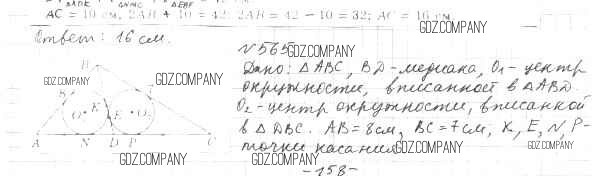 AC = 10 см, 2AB + 10 = 42; 2AB = 42 - 10 = 32; AC = 16 см.
Ответ: 16 см.
№565
GDZ.COMPANY
GDZ.COMPANY
GDZ.COMPANY
Дано: △ABC, BD - медиана, O₁ - центр
окружности, вписанной в △ABD.
O₂ - центр окружности, вписанной
в △DBC. AB = 8 см, BC = 7 см, K, E, N, P -
точки касания
GDZ.COMPANY
GDZ.COMPANY
GDZ.COMPANY
B
K
E
O₁
O₂
A
N
D
P
C
-158-